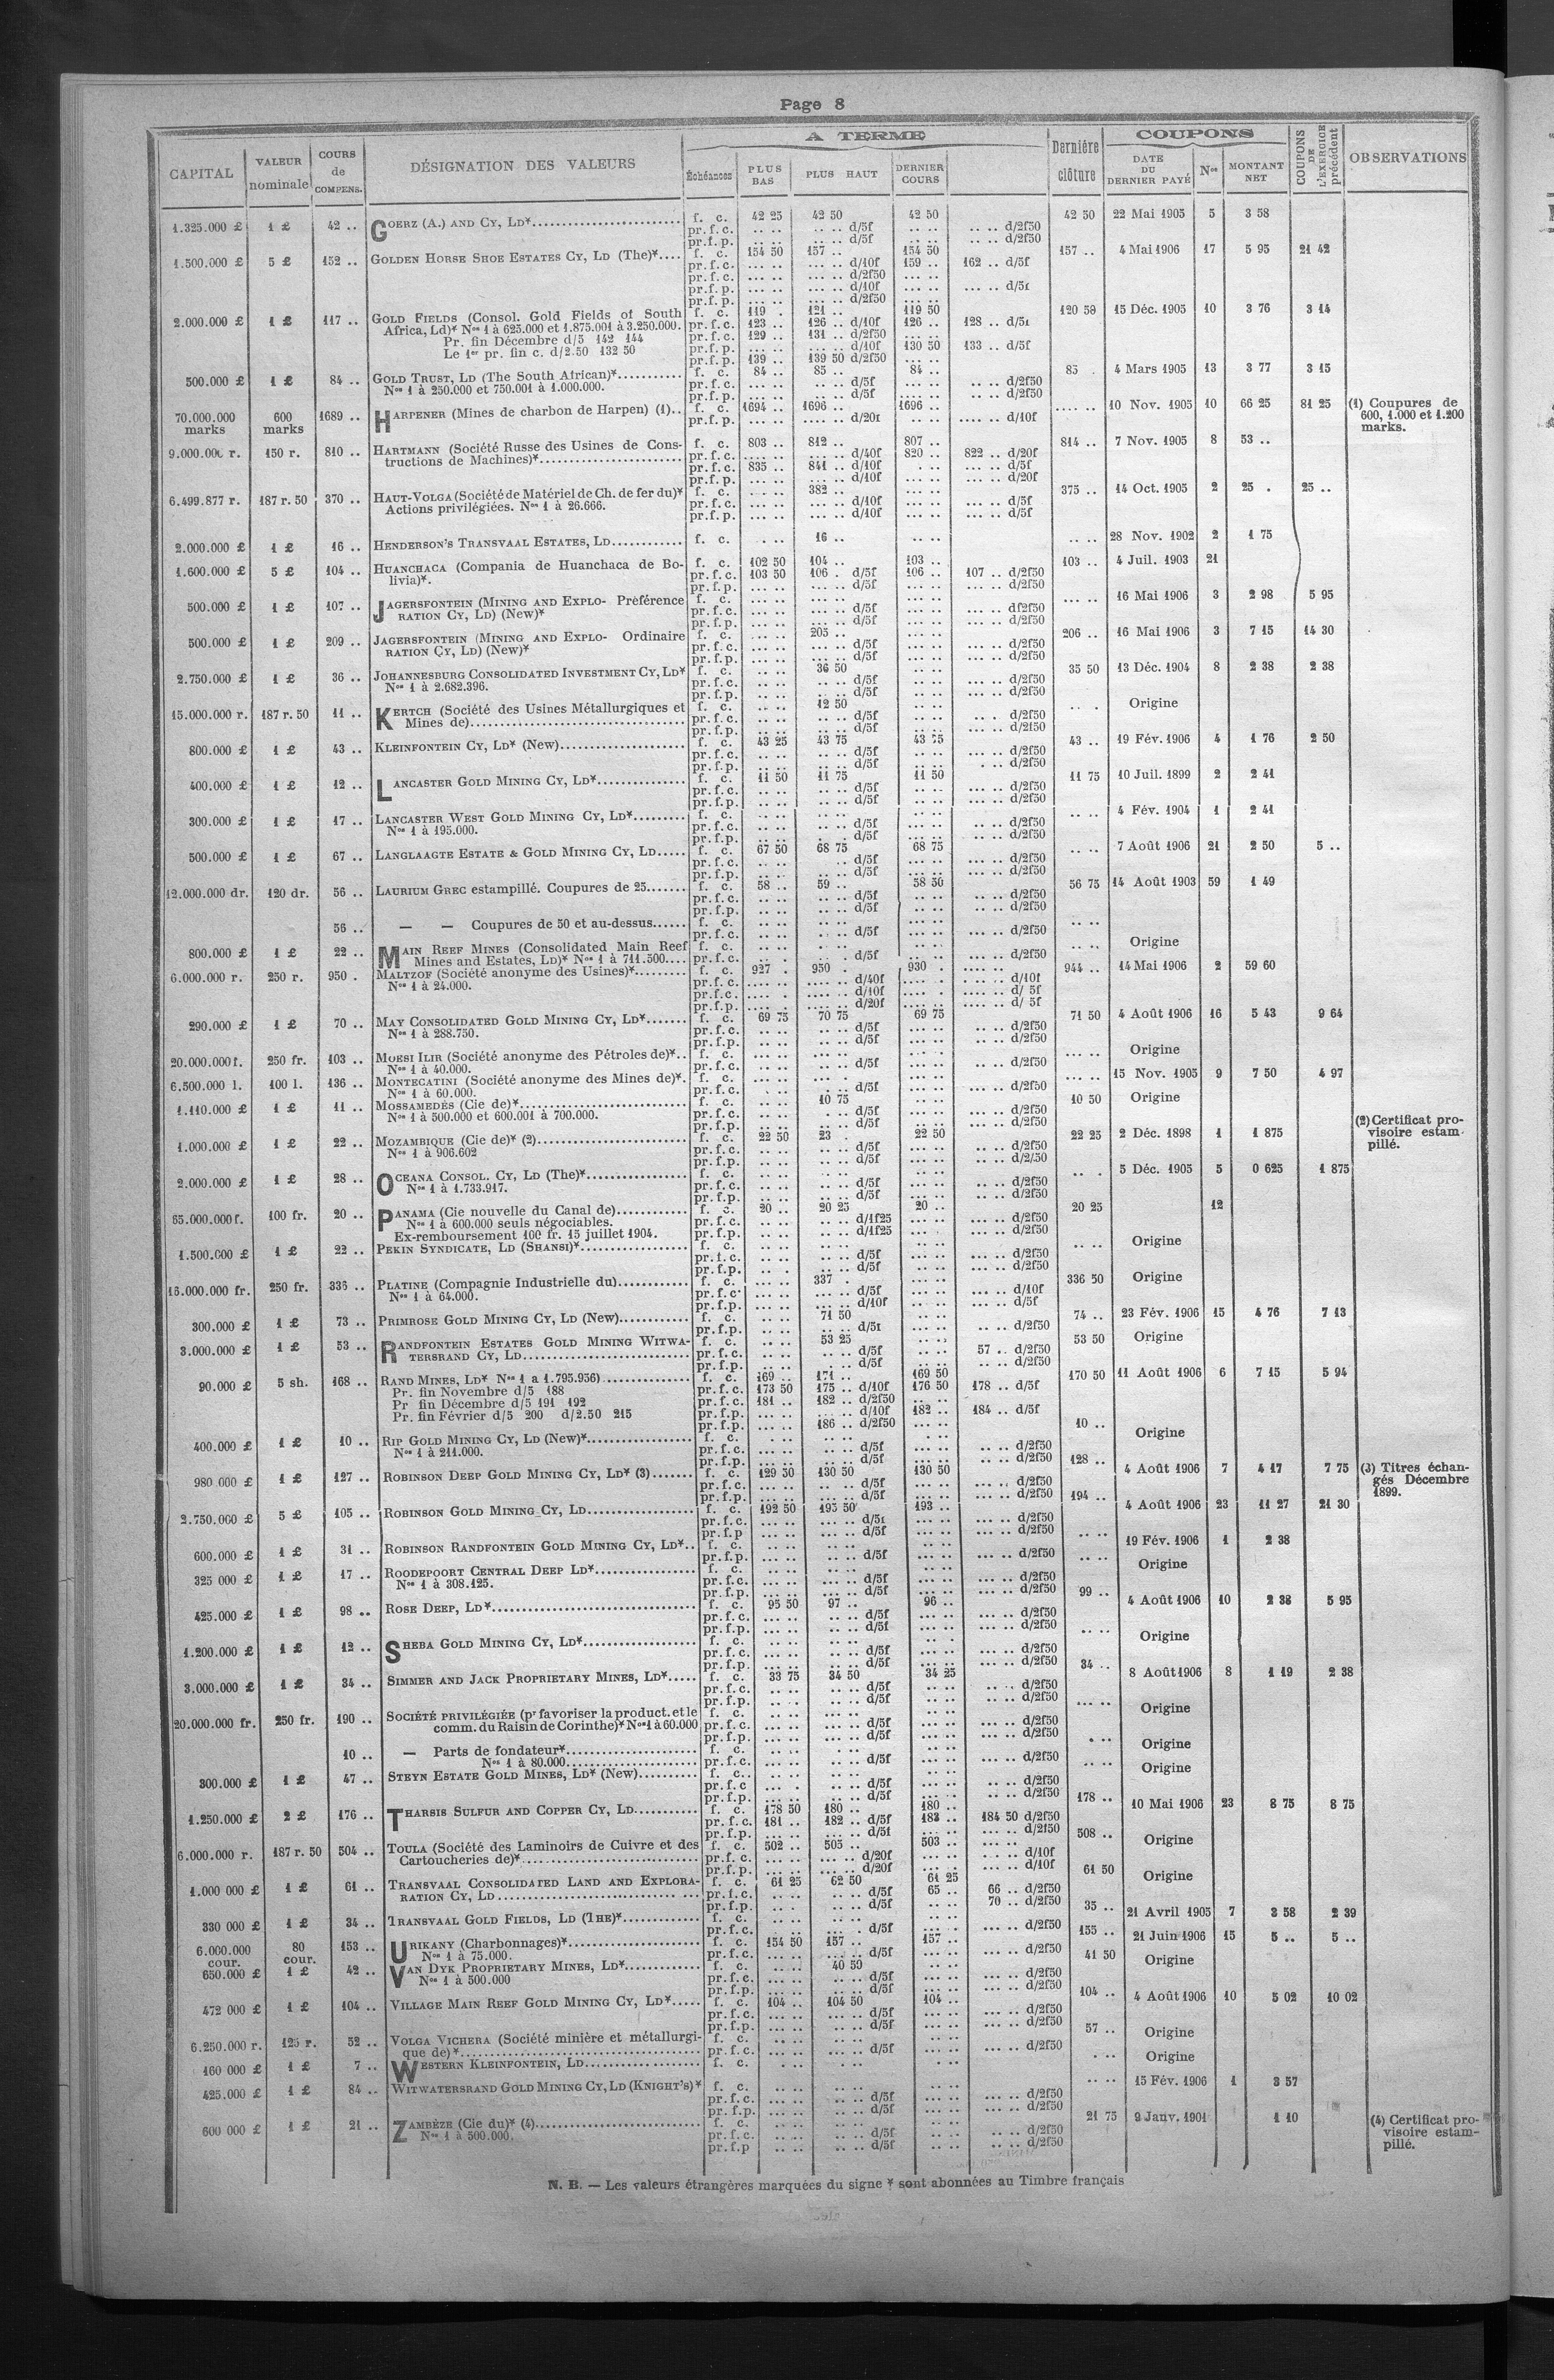 Page 8
A TERME
COUPONS
CAPITAL
VALEUR nominale
COURS de COMPENS.
DÉSIGNATION DES VALEURS
Échéances
PLUS BAS
PLUS HAUT
DERNIER COURS
Dernière clôture
DATE DU DERNIER PAYÉ
Nos
MONTANT NET
COUPONS DE L'EXERCICE précédent
OBSERVATIONS
1.325.000 £ 1 £ 42 .. GOERZ (A.) AND CY, LD* f. c. 42 25 42 50 42 50 42 50 22 Mai 1905 5 3 58
pr.f.c. .. .. .. .. d/5f .. .. .. .. d/2f50
pr.f.p. .. .. .. .. d/5f .. .. .. .. d/2f50
1.500.000 £ 5 £ 152 .. GOLDEN HORSE SHOE ESTATES CY, LD (The)* f. c. 154 50 157 .. 154 50 157 .. 4 Mai 1906 17 5 95 21 42
pr.f.c. ... .. ... .. d/10f 159 .. 162 .. d/5f
pr.f.c. ... .. ... .. d/2f50
pr.f.p. ... .. ... .. d/10f ... .. ... .. d/5f
pr.f.p. ... .. ... .. d/2f50
2.000.000 £ 1 £ 117 .. GOLD FIELDS (Consol. Gold Fields of South f. c. 119 . 121 .. 119 50 120 50 15 Déc. 1905 10 3 76 3 14
Africa, Ld)* Nos 1 à 625.000 et 1.875.001 à 3.250.000. pr.f.c. 123 .. 126 .. d/10f 126 .. 128 .. d/5f
Pr. fin Décembre d/5 142 144 pr.f.c. 129 .. 131 .. d/2f50
Le 1er pr. fin c. d/2.50 132 50 pr.f.p. ... .. ... .. d/10f 130 50 133 .. d/5f
pr.f.p. 139 .. 139 50 d/2f50
500.000 £ 1 £ 84 .. GOLD TRUST, LD (The South African)* f. c. 84 .. 85 .. 84 .. 85 . 4 Mars 1905 13 3 77 3 15
Nos 1 à 250.000 et 750.001 à 1.000.000. pr.f.c. d/5f d/2f50
pr.f.p. d/5f d/2f50
70.000.000 marks 600 marks 1689 .. HARPENER (Mines de charbon de Harpen) (1) f. c. 1694 .. 1696 .. 1696 .. .... .. 10 Nov. 1905 10 66 25 81 25 (1) Coupures de 600, 1.000 et 1.200 marks.
pr.f.p. d/20f d/10f
9.000.000 r. 150 r. 810 .. HARTMANN (Société Russe des Usines de Cons- f. c. 803 .. 812 .. 807 .. 814 .. 7 Nov. 1905 8 53 ..
tructions de Machines)* pr.f.c. d/40f 820 .. 822 .. d/20f
pr.f.c. 835 .. 841 .. d/10f d/5f
pr.f.p. d/10f d/20f
6.499.877 r. 187 r. 50 370 .. HAUT-VOLGA (Société de Matériel de Ch. de fer du)* f. c. 382 .. 375 .. 14 Oct. 1905 2 25 . 25 ..
Actions privilégiées. Nos 1 à 26.666. pr.f.c. d/10f d/5f
pr.f.p. d/10f d/5f
2.000.000 £ 1 £ 16 .. HENDERSON'S TRANSVAAL ESTATES, LD f. c. 16 .. 28 Nov. 1902 2 1 75
1.600.000 £ 5 £ 104 .. HUANCHACA (Compania de Huanchaca de Bo- f. c. 102 50 104 .. 103 .. 103 .. 4 Juil. 1903 21
livia)*. pr.f.c. 103 50 106 . d/5f 106 .. 107 .. d/2f50
pr.f.p. d/5f d/2f50
500.000 £ 1 £ 107 .. JAGERSFONTEIN (MINING AND EXPLO- Préférence f. c. 16 Mai 1906 3 2 98 5 95
RATION CY, LD) (New)* pr.f.c. d/5f df2f50
pr.f.p. d/5f d/2f50
500.000 £ 1 £ 209 .. JAGERSFONTEIN (MINING AND EXPLO- Ordinaire f. c. 205 .. 206 .. 16 Mai 1906 3 7 15 14 30
RATION CY, LD) (New)* pr.f.c. d/5f d/2f50
pr.f.p. d/5f d/2f50
2.750.000 £ 1 £ 36 .. JOHANNESBURG CONSOLIDATED INVESTMENT CY, LD* f. c. 36 50 35 50 13 Déc. 1904 8 2 38 2 38
Nos 1 à 2.682.396. pr.f.c. d/5f d/2f50
pr.f.p. d/5f d/2f50
15.000.000 r. 187 r. 50 11 .. KERTCH (Société des Usines Métallurgiques et f. c. 12 50 Origine
Mines de) pr.f.c. d/5f d/2f50
pr.f.p. d/5f d/2f50
800.000 £ 1 £ 43 .. KLEINFONTEIN CY, LD* (New) f. c. 43 25 43 75 43 75 43 .. 19 Fév. 1906 4 1 76 2 50
pr.f.c. d/5f d/2f50
pr.f.p. d/5f d/2f50
400.000 £ 1 £ 12 .. LANCASTER GOLD MINING CY, LD* f. c. 11 50 11 75 11 50 11 75 10 Juil. 1899 2 2 41
pr.f.c. d/5f d/2f50
pr.f.p. d/5f d/2f50
300.000 £ 1 £ 17 .. LANCASTER WEST GOLD MINING CY, LD* f. c. 4 Fév. 1904 1 2 41
Nos 1 à 195.000. pr.f.c. d/5f d/2f50
pr.f.p. d/5f d/2f50
500.000 £ 1 £ 67 .. LANGLAAGTE ESTATE & GOLD MINING CY, LD f. c. 67 50 68 75 68 75 7 Août 1906 21 2 50 5 ..
pr.f.c. d/5f d/2f50
pr.f.p. d/5f d/2f50
12.000.000 dr. 120 dr. 56 .. LAURIUM GREC estampillé. Coupures de 25 f. c. 58 .. 59 .. 58 50 56 75 14 Août 1903 59 1 49
pr.f.c. d/5f d/2f50
pr.f.p. d/5f d/2f50
56 .. — — Coupures de 50 et au-dessus f. c.
pr.f.c. d/5f d/2f50
800.000 £ 1 £ 22 .. MAIN REEF MINES (Consolidated Main Reef f. c. Origine
Mines and Estates, LD)* Nos 1 à 711.500 pr.f.c. d/5f d/2f50
6.000.000 r. 250 r. 950 . MALTZOF (Société anonyme des Usines)* f. c. 927 . 950 . 930 . 944 .. 14 Mai 1906 2 59 60
Nos 1 à 24.000. pr.f.c. d/40f d/10f
pr.f.c. d/10f d/ 5f
pr.f.p. d/20f d/ 5f
290.000 £ 1 £ 70 .. MAY CONSOLIDATED GOLD MINING CY, LD* f. c. 69 75 70 75 69 75 71 50 4 Août 1906 16 5 43 9 64
Nos 1 à 288.750. pr.f.c. d/5f d/2f50
pr.f.p. d/5f d/2f50
20.000.000 f. 250 fr. 103 .. MOESI ILIR (Société anonyme des Pétroles de)* f. c. Origine
Nos 1 à 40.000. pr.f.c. d/5f d/2f50
6.500.000 l. 100 l. 136 .. MONTECATINI (Société anonyme des Mines de)* f. c. 15 Nov. 1905 9 7 50 4 97
Nos 1 à 60.000. pr.f.c. d/5f d/2f50
1.110.000 £ 1 £ 11 .. MOSSAMEDÈS (Cie de)* f. c. 10 75 10 50 Origine
Nos 1 à 500.000 et 600.001 à 700.000. pr.f.c. d/5f d/2f50
pr.f.p. d/5f d/2f50
1.000.000 £ 1 £ 22 .. MOZAMBIQUE (Cie de)* (2) f. c. 22 50 23 . 22 50 22 25 2 Déc. 1898 1 1 875 (2) Certificat provisoire estampillé.
Nos 1 à 906.602 pr.f.c. d/5f d/2f50
pr.f.p. d/5f d/2/50
2.000.000 £ 1 £ 28 .. OCEANA CONSOL. CY, LD (The)* f. c. 5 Déc. 1905 5 0 625 1 875
Nos 1 à 1.733.917. pr.f.c. d/5f d/2f50
pr.f.p. d/5f d/2f50
65.000.000 f. 100 fr. 20 .. PANAMA (Cie nouvelle du Canal de) f. c. 20 .. 20 25 20 .. 20 25 12
Nos 1 à 600.000 seuls négociables. pr.f.c. d/1f25 d/2f50
Ex-remboursement 100 fr. 15 juillet 1904. pr.f.p. d/1f25 d/2f50
1.500.000 £ 1 £ 22 .. PEKIN SYNDICATE, LD (SHANSI)* f. c. Origine
pr.f.c. d/5f d/2f50
pr.f.p. d/5f d/2f50
16.000.000 fr. 250 fr. 336 .. PLATINE (Compagnie Industrielle du) f. c. 337 . 336 50 Origine
Nos 1 à 64.000. pr.f.c. d/5f d/10f
pr.f.p. d/10f d/5f
300.000 £ 1 £ 73 .. PRIMROSE GOLD MINING CY, LD (New) f. c. 71 50 74 .. 23 Fév. 1906 15 4 76 7 13
pr.f.p. d/5f d/2f50
3.000.000 £ 1 £ 53 .. RANDFONTEIN ESTATES GOLD MINING WITWA- f. c. 53 25 53 50 Origine
TERSRAND CY, LD pr.f.c. d/5f 57 .. d/2f50
pr.f.p. d/5f d/2f50
90.000 £ 5 sh. 168 .. RAND MINES, LD* Nos 1 a 1.795.956) f. c. 169 .. 171 .. 169 50 170 50 11 Août 1906 6 7 15 5 94
Pr. fin Novembre d/5 188 pr.f.c. 173 50 175 .. d/10f 176 50 178 .. d/5f
Pr fin Décembre d/5 191 192 pr.f.c. 181 .. 182 .. d/2f50
Pr. fin Février d/5 200 d/2.50 215 pr.f.p. d/10f 182 .. 184 .. d/5f
pr.f.p. 186 .. d/2f50
400.000 £ 1 £ 10 .. RIP GOLD MINING CY, LD (New)* f. c. 10 .. Origine
Nos 1 à 211.000. pr.f.c. d/5f d/2f50
pr.f.p. d/5f d/2f50
980 000 £ 1 £ 127 .. ROBINSON DEEP GOLD MINING CY, LD* (3) f. c. 129 50 130 50 130 50 128 .. 4 Août 1906 7 4 17 7 75 (3) Titres échangés Décembre 1899.
pr.f.c. d/5f d/2f50
pr.f.p. d/5f d/2f50
2.750.000 £ 5 £ 105 .. ROBINSON GOLD MINING CY, LD f. c. 192 50 195 50 193 .. 194 .. 4 Août 1906 23 11 27 21 30
pr.f.c. d/5f d/2f50
pr.f.p d/5f d/2f50
600.000 £ 1 £ 31 .. ROBINSON RANDFONTEIN GOLD MINING CY, LD* f. c. 19 Fév. 1906 1 2 38
pr.f.p. d/5f d/2f50
325 000 £ 1 £ 17 .. ROODEPOORT CENTRAL DEEP LD* f. c. Origine
Nos 1 à 308.125. pr.f.c. d/5f d/2f50
pr.f.p. d/5f d/2f50
425.000 £ 1 £ 98 .. ROSE DEEP, LD* f. c. 95 50 97 .. 96 .. 99 .. 4 Août 1906 10 2 38 5 95
pr.f.c. d/5f d/2f50
pr.f.p. d/5f d/2f50
1.200.000 £ 1 £ 12 .. SHEBA GOLD MINING CY, LD* f. c. Origine
pr.f.c. d/5f d/2f50
pr.f.p. d/5f d/2f50
3.000.000 £ 1 £ 34 .. SIMMER AND JACK PROPRIETARY MINES, LD* f. c. 33 75 34 50 34 25 34 .. 8 Août 1906 8 1 19 2 38
pr.f.c. d/5f d/2f50
pr.f.p. d/5f d/2f50
20.000.000 fr. 250 fr. 190 .. SOCIÉTÉ PRIVILÉGIÉE (pr favoriser la product. et le f. c. Origine
comm. du Raisin de Corinthe)* Nos 1 à 60.000 pr.f.c. d/5f d/2f50
pr.f.p. d/5f d/2f50
10 .. — Parts de fondateur* f. c. Origine
Nos 1 à 80.000 pr.f.c. d/5f d/2f50
300.000 £ 1 £ 47 .. STEYN ESTATE GOLD MINES, LD* (New) f. c. Origine
pr.f.c d/5f d/2f50
pr.f.p. d/5f d/2f50
1.250.000 £ 2 £ 176 .. THARSIS SULFUR AND COPPER CY, LD f. c. 178 50 180 .. 180 .. 178 .. 10 Mai 1906 23 8 75 8 75
pr.f.c. 181 .. 182 .. d/5f 183 .. 184 50 d/2f50
pr.f.p. d/5f d/2f50
6.000.000 r. 187 r. 50 504 .. TOULA (Société des Laminoirs de Cuivre et des f. c. 502 .. 505 .. 503 .. 508 .. Origine
Cartoucheries de)* pr.f.c. d/20f d/10f
pr.f.p. d/20f d/10f
1.000 000 £ 1 £ 61 .. TRANSVAAL CONSOLIDATED LAND AND EXPLORA- f. c. 61 25 62 50 61 25 61 50 Origine
RATION CY, LD pr.f.c. d/5f 65 .. 66 .. d/2f50
pr.f.p. d/5f 70 .. d/2f50
330 000 £ 1 £ 34 .. TRANSVAAL GOLD FIELDS, LD (THE)* f. c. 35 .. 21 Avril 1905 7 3 58 2 39
pr.f.c. d/5f d/2f50
6.000.000 cour. 80 cour. 153 .. URIKANY (Charbonnages)* f. c. 154 50 157 .. 157 .. 155 .. 21 Juin 1906 15 5 .. 5 ..
Nos 1 à 75.000. pr.f.c. d/5f d/2f50
650.000 £ 1 £ 42 .. VAN DYK PROPRIETARY MINES, LD* f. c. 40 50 41 50 Origine
Nos 1 à 500.000 pr.f.c. d/5f d/2f50
pr.f.p. d/5f d/2f50
472 000 £ 1 £ 104 .. VILLAGE MAIN REEF GOLD MINING CY, LD* f. c. 104 .. 104 50 104 .. 104 .. 4 Août 1906 10 5 02 10 02
pr.f.c. d/5f d/2f50
pr.f.p. d/5f d/2f50
6.250.000 r. 125 r. 52 .. VOLGA VICHERA (Société minière et métallurgi- f. c. 57 .. Origine
que de)* pr.f.c. d/5f d/2f50
160 000 £ 1 £ 7 .. WESTERN KLEINFONTEIN, LD f. c. Origine
425.000 £ 1 £ 84 .. WITWATERSRAND GOLD MINING CY, LD (KNIGHT'S)* f. c. 15 Fév. 1906 1 3 57
pr.f.c. d/5f d/2f50
pr.f.p. d/5f d/2f50
600 000 £ 1 £ 21 .. ZAMBÈZE (Cie du)* (4) f. c. 21 75 9 Janv. 1901 1 10 (4) Certificat provisoire estampillé.
Nos 1 à 500.000. pr.f.c. d/5f d/2f50
pr.f.p d/5f d/2f50
N. B. — Les valeurs étrangères marquées du signe * sont abonnées au Timbre français